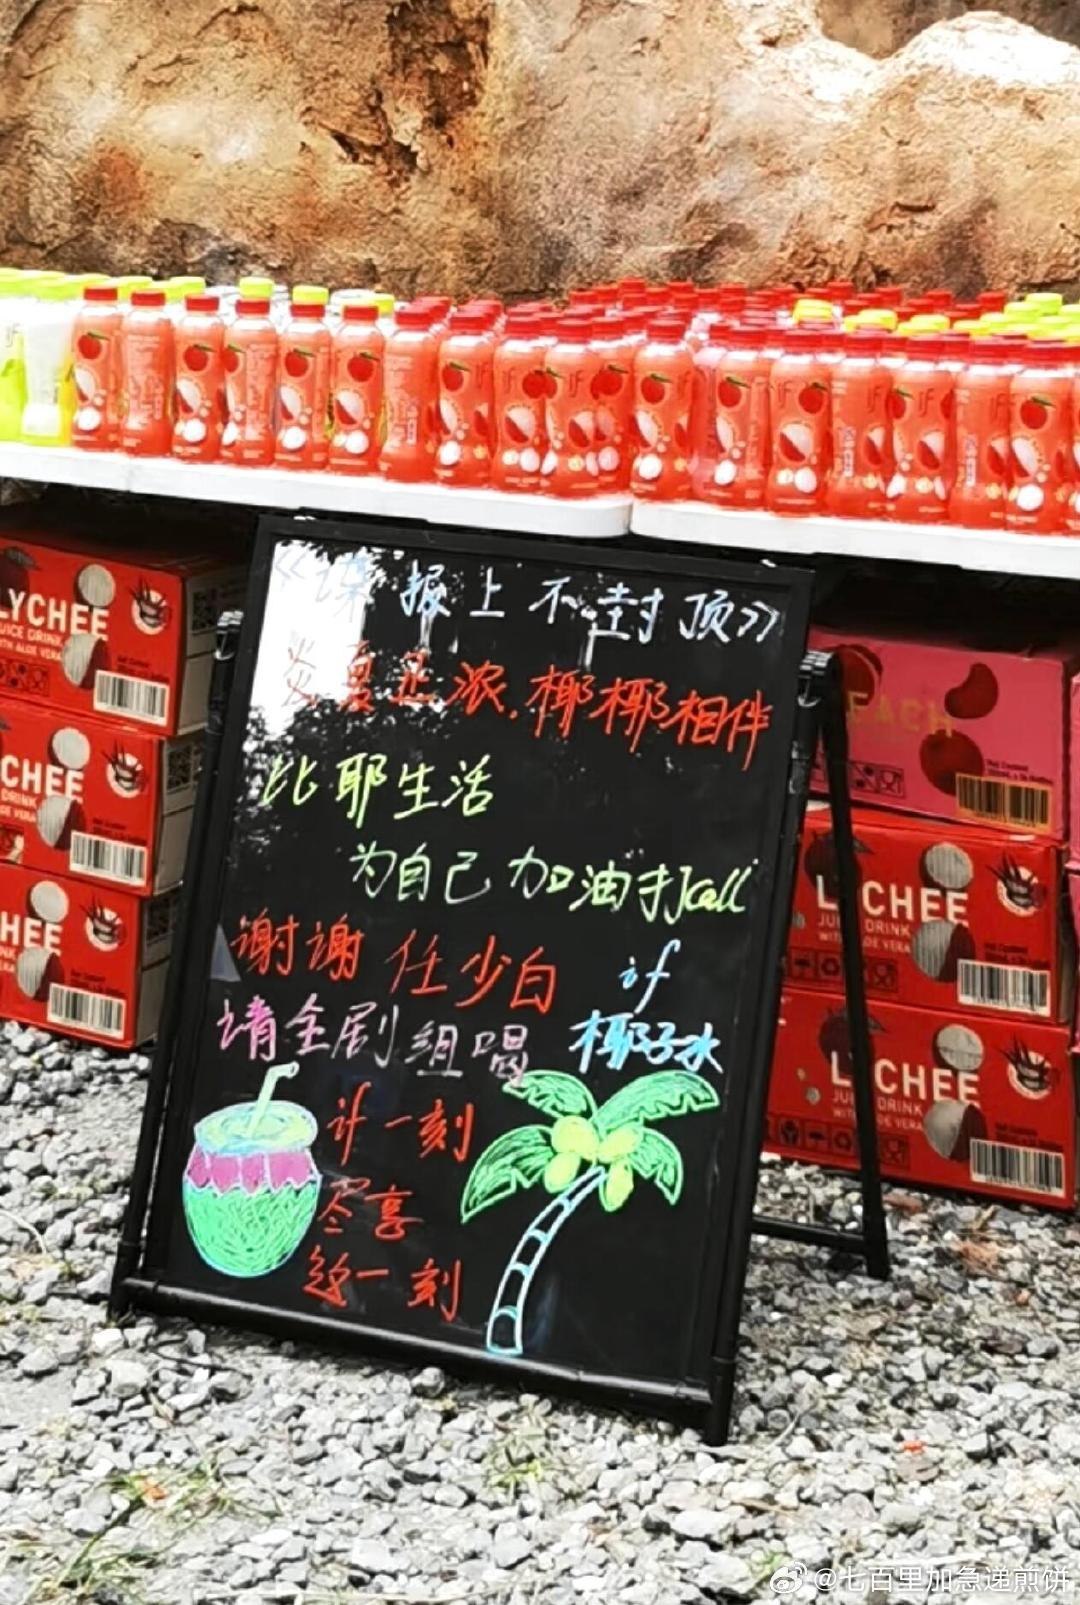 《谍报上不封顶》
炎夏正浓,椰椰相伴
比耶生活
为自己加油打call
谢谢 任少白
if
请全剧组喝
椰子水
计一刻
尽享
这一刻
LYCHEE
JUICE DRINK
WITH ALOE VERA
CHEE
DRINK
HEE
PEACH
LYCHEE
JUICE DRINK
WITH ALOE VERA
LYCHEE
JUICE DRINK
@七百里加急递煎饼